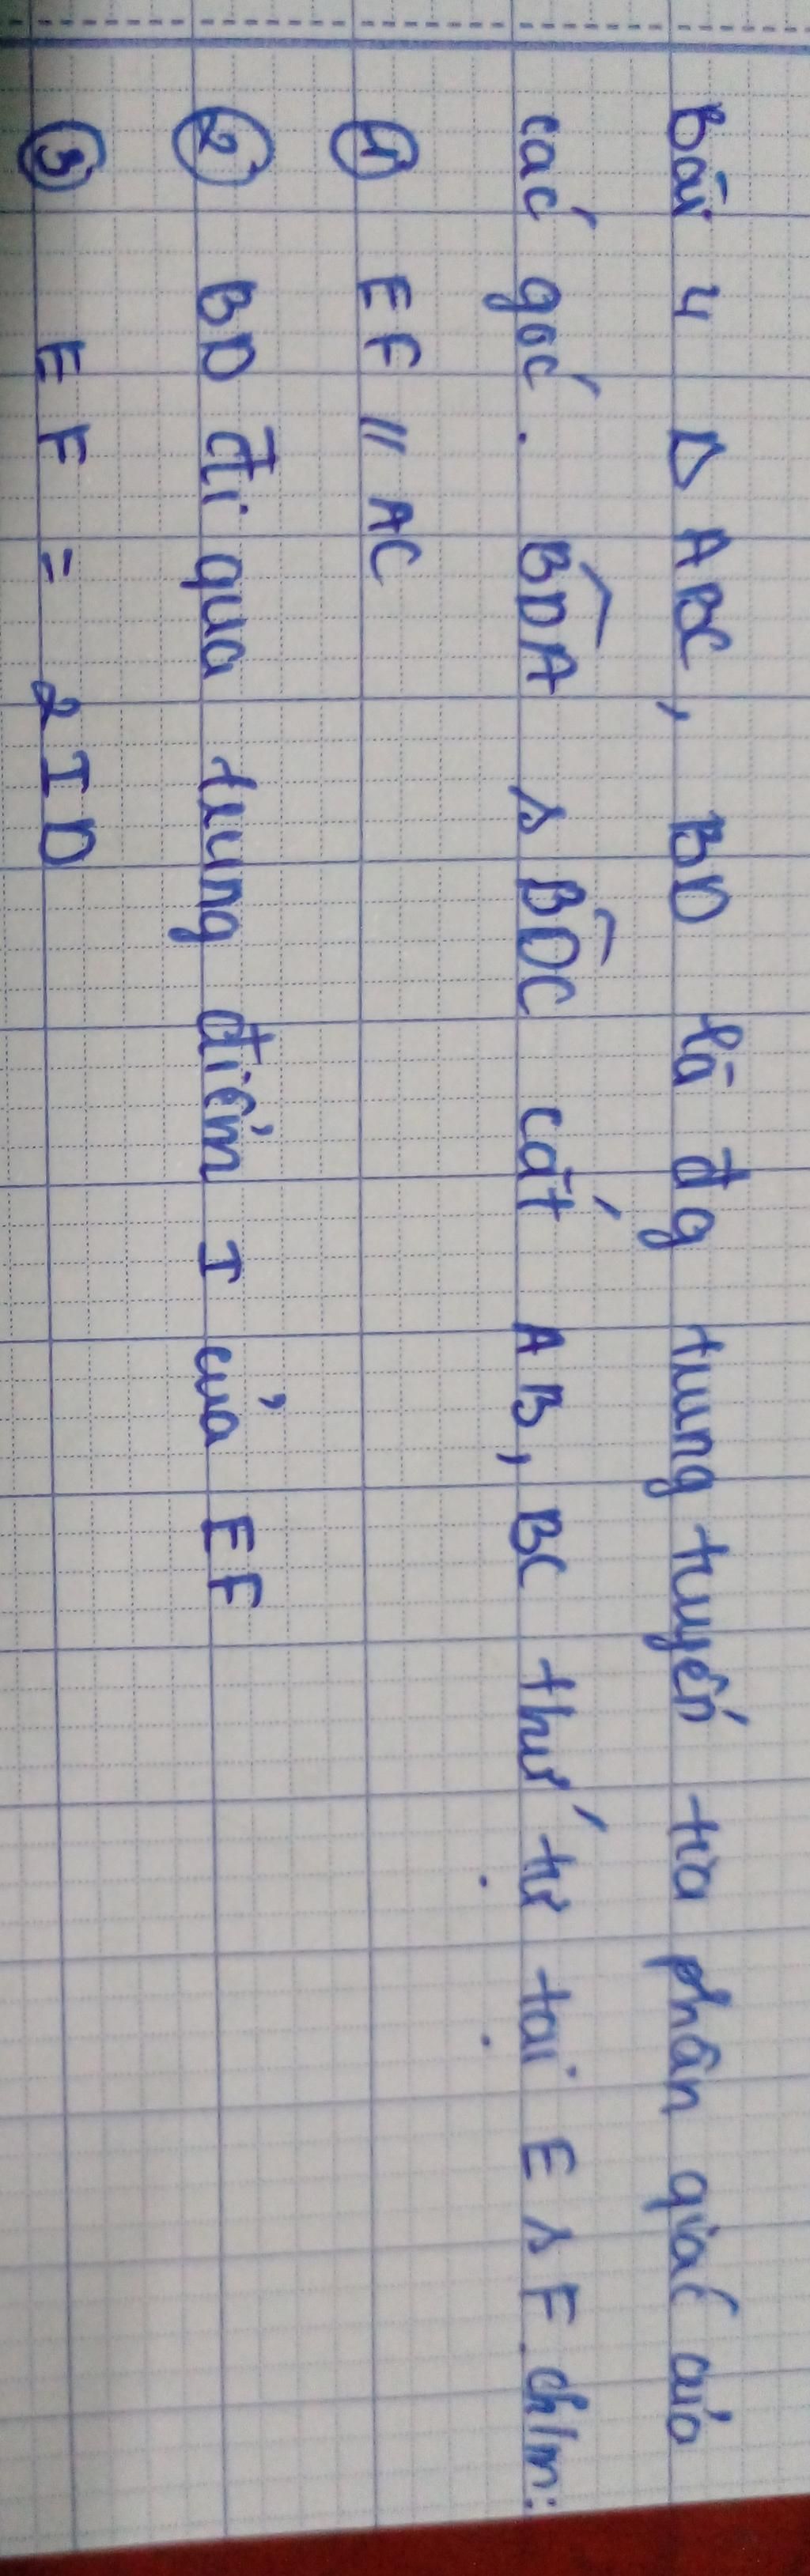 Bài 4 Δ ABC, BD là đg trung tuyến tia phân giác của
các góc. BDA ^ BDC cắt AB, BC thứ tự tại E ^ F ch/m:
① EF // AC
② BD đi qua trung điểm I của EF
③ EF = 2 ID